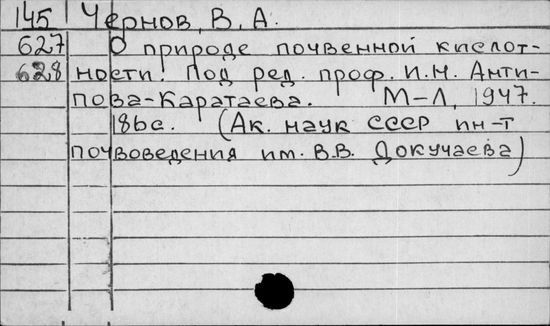 145 Чернов, В. А.
627 О природе почвенной кислот-
628 ности. Под ред. проф. И.Н. Анти-
пова-Каратаева. М-Л, 1947.
186с. (Ак. наук СССР ин-т
почвоведения им. В.В. Докучаева)